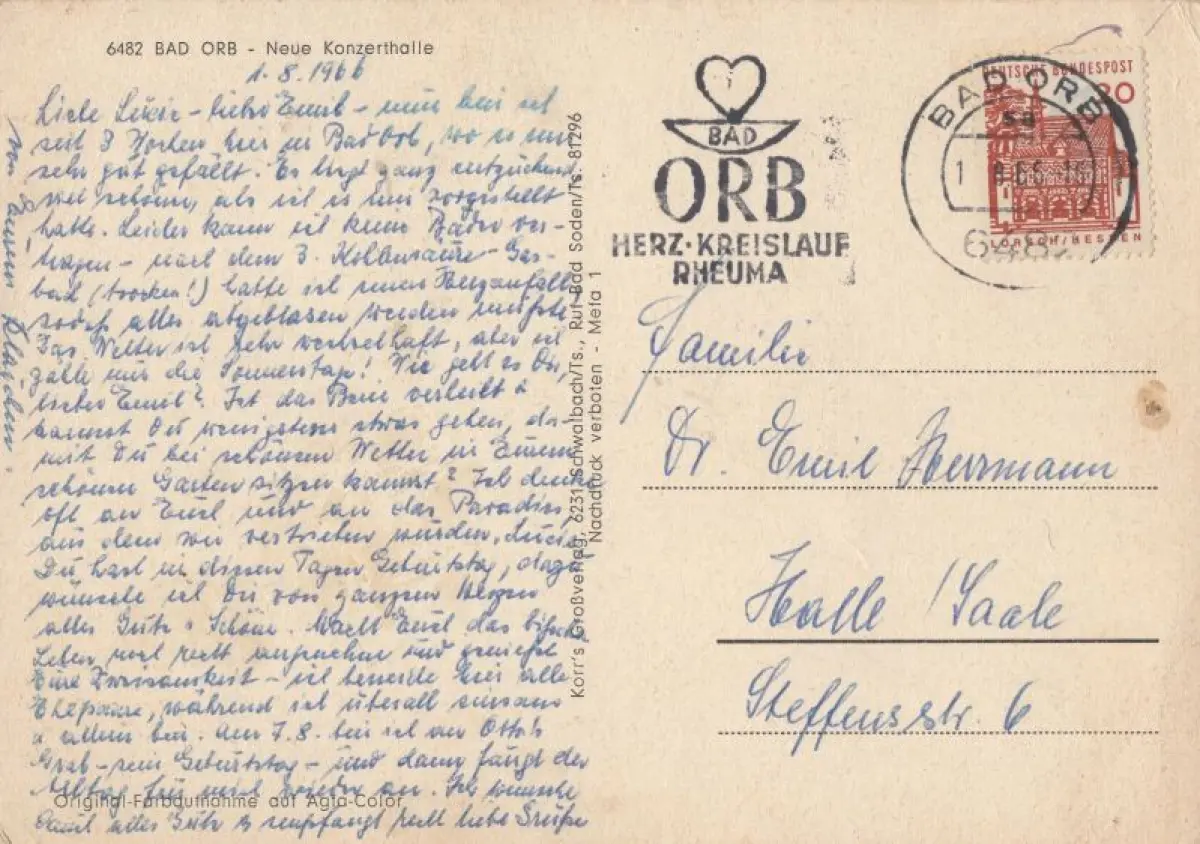 6482 BAD ORB - Neue Konzerthalle
1.8.1966
Liebe Lucie - lieber Emil - nun bin ich
seit 3 Wochen hier in Bad Orb, wo es mir
sehr gut gefällt. Es liegt ganz entzückend
viel schöner, als ich es mir vorgestellt
hatte. Leider kann ich keine Bäder ver-
tragen - nach dem 3. Kohlensäure-Gas-
bad (trocken!) hatte ich einen Herzanfall,
sodaß alles abgeblasen werden mußte.
Das Wetter ist sehr wechselhaft, aber ich
zähle nur die Sonnentage! Wie geht es Dir,
lieber Emil? Ist das Bein verheilt u
kannst Du wenigstens etwas gehen, da-
mit Du bei schönem Wetter in Eurem
schönen Garten sitzen kannst? Ich denke
oft an Euch und an das Paradies
aus dem wir vertrieben wurden, Lucie
Du hast in diesen Tagen Geburtstag, dazu
wünsche ich Dir von ganzem Herzen
alles Gute u Schöne. Macht Euch das bißchen
Leben noch recht angenehm und genießt
Eure Zweisamkeit - ich beneide hier alle
Ehepaare, während ich überall einsam
u allein bin. Am 7.8. bin ich an Otto's
Grab - sein Geburtstag - und dann fängt der
Alltag für mich wieder an. Ich wünsche
Euch alles Gute u empfangt recht liebe Grüße
von Eurem
Original-Farbaufnahme auf Agfa-Color
Korr's Großverlag, 6231 Schwalbach/Ts., Ruf Bad Soden/Ts. 81296
Nachdruck verboten - Meta 1
BAD
ORB
HERZ·KREISLAUF
RHEUMA
BAD ORB
DEUTSCHE BUNDESPOST
20
LORSCH/HESSEN
Familie
Dr. Emil Herrmann
Halle/Saale
Steffensstr. 6